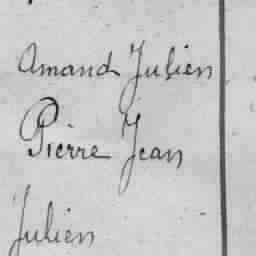 Amand Julien
Pierre Jean
Julien